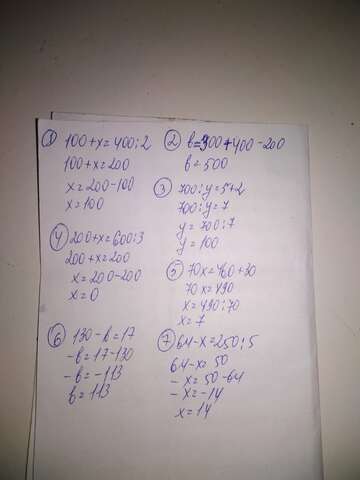 ① 100+x=400:2
100+x=200
x=200-100
x=100
② b=300+400-200
b=500
③ 700:y=5+2
700:y=7
y=700:7
y=100
④ 200+x=600:3
200+x=200
x=200-200
x=0
⑤ 70x=460+30
70x=490
x=490:70
x=7
⑥ 130-b=17
-b=17-130
-b=-113
b=113
⑦ 64-x=250:5
64-x=50
-x=50-64
-x=-14
x=14